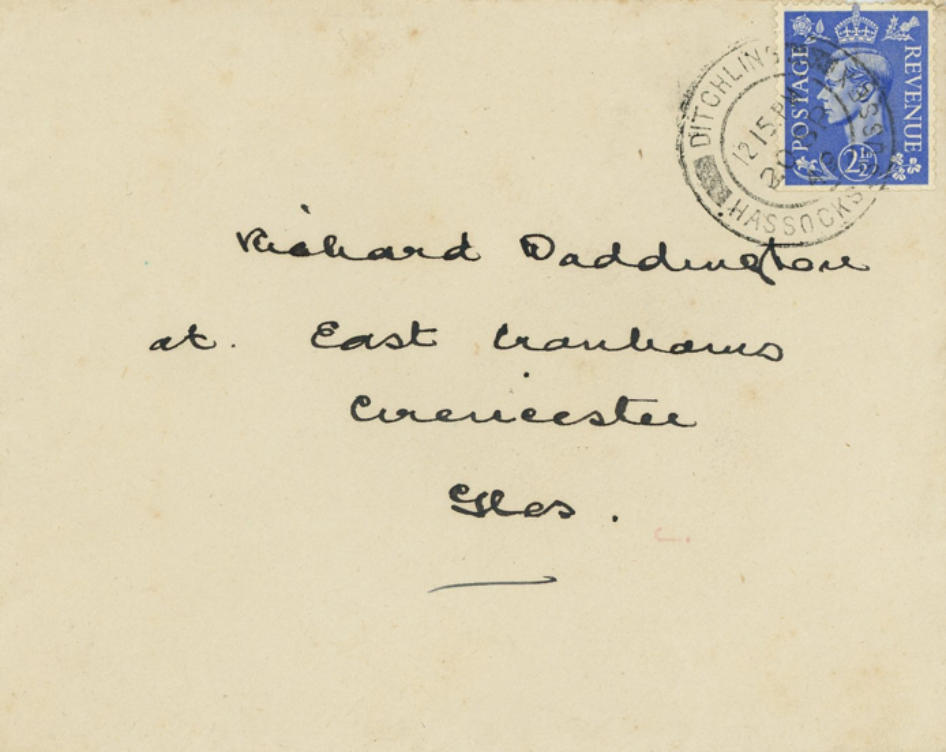 POSTAGE REVENUE
2½D
DITCHLING
HASSOCKS
12 15 PM
Richard Daddington
at. East Cranhams
Cirencester
Glos.